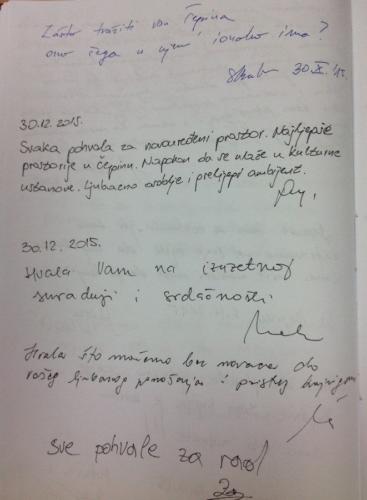 Zašto tražiti van Čepina
ono čega u njemu ionako ima?
30.XII.'15.
30.12.2015.
Svaka pohvala za novouređeni prostor. Najljepše
prostorije u Čepinu. Napokon da se ulaže u kulturne
ustanove. Ljubazno osoblje i prelijepi ambijent.
30.12.2015.
Hvala Vam na izuzetnoj
suradnji i srdačnosti
Hvala što možemo bez novaca do
vašeg ljubaznog ponašanja i
sve pohvale za rad